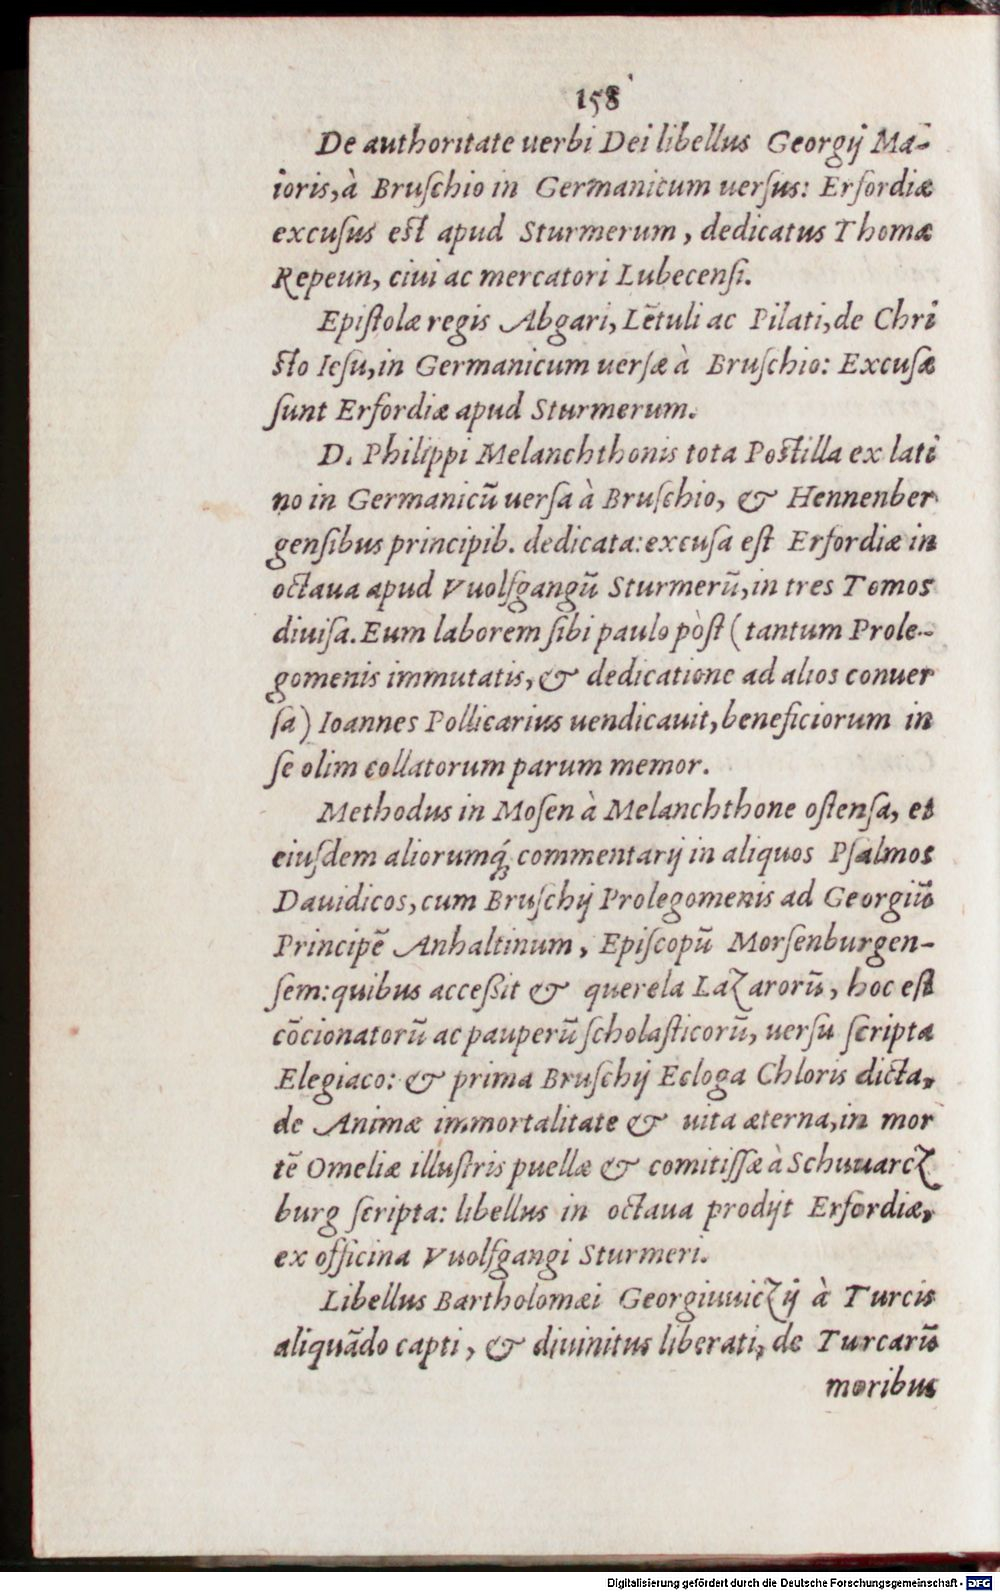 158
De authoritate uerbi Dei libellus Georgij Ma-
ioris, à Bruſchio in Germanicum uerſus: Erfordiæ
excuſus eſt apud Sturmerum, dedicatus Thomæ
Repeun, ciui ac mercatori Lubecenſi.
Epiſtolæ regis Abgari, Lētuli ac Pilati, de Chri
ſto Ieſu, in Germanicum uerſæ à Bruſchio: Excuſæ
ſunt Erfordiæ apud Sturmerum.
D. Philippi Melanchthonis tota Poſtilla ex lati
no in Germanicū uerſa à Bruſchio, & Hennenber
genſibus principib. dedicata: excuſa eſt Erfordiæ in
octaua apud Vuolfgangū Sturmerū, in tres Tomos
diuiſa. Eum laborem ſibi paulo pòſt (tantum Prole-
gomenis immutatis, & dedicatione ad alios conuer
ſa) Ioannes Pollicarius uendicauit, beneficiorum in
ſe olim collatorum parum memor.
Methodus in Moſen à Melanchthone oſtenſa, et
eiuſdem aliorumq́; commentarij in aliquos Pſalmos
Dauidicos, cum Bruſchij Prolegomenis ad Georgiū
Principē Anhaltinum, Epiſcopū Morſenburgen-
ſem: quibus acceßit & querela Lazarorū, hoc eſt
cōcionatorū ac pauperū ſcholaſticorū, uerſu ſcripta
Elegiaco: & prima Bruſchij Ecloga Chloris dicta,
de Animæ immortalitate & uita æterna, in mor
tē Omeliæ illuſtris puellæ & comitiſſæ à Schuuarcz
burg ſcripta: libellus in octaua prodijt Erfordiæ,
ex officina Vuolfgangi Sturmeri.
Libellus Bartholomæi Georgiuuiczij à Turcis
aliquādo capti, & diuinitus liberati, de Turcarū
moribus
Digitalisierung gefördert durch die Deutsche Forschungsgemeinschaft - DFG